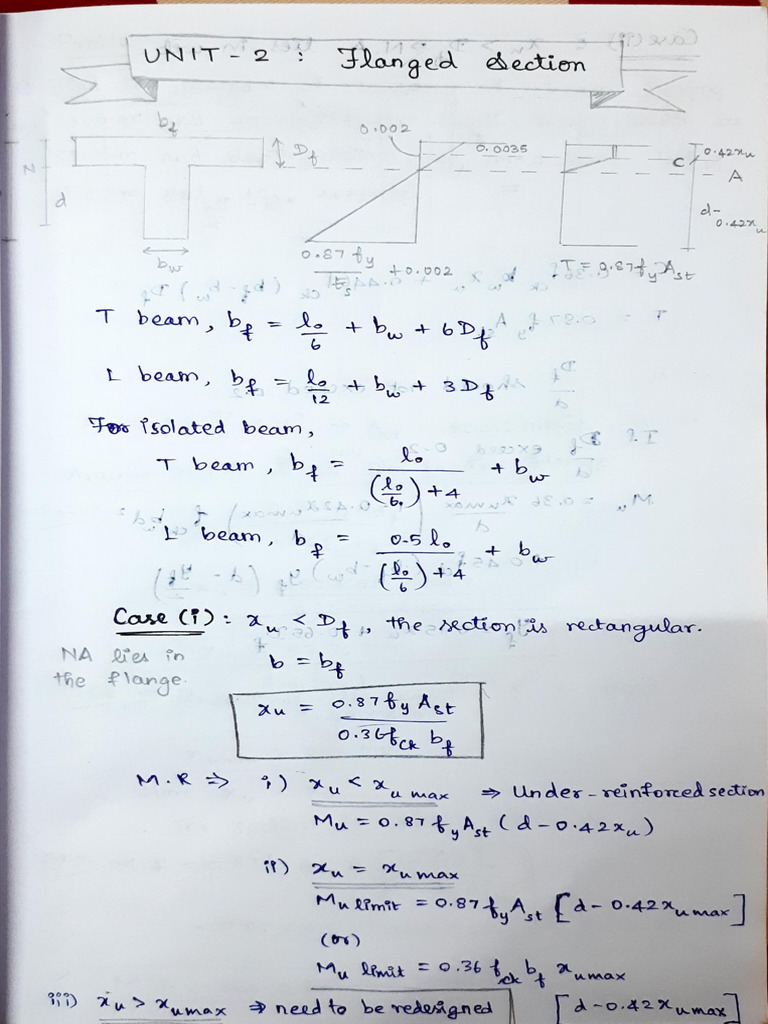 UNIT - 2 : Flanged Section
b_f
D_f
d
b_w
0.002
0.0035
0.87 f_y / E_s + 0.002
C
0.42x_u
A
d - 0.42x_u
T = 0.87 f_y A_st
T beam, b_f = l_o/6 + b_w + 6 D_f
L beam, b_f = l_o/12 + b_w + 3 D_f
For isolated beam,
T beam, b_f = l_o / ((l_o/6) + 4) + b_w
L beam, b_f = 0.5 l_o / ((l_o/6) + 4) + b_w
Case (i) : x_u < D_f, the section is rectangular.
NA lies in
the flange.
b = b_f
x_u = 0.87 f_y A_st / 0.36 f_ck b_f
M.R ⇒ i) x_u < x_u max ⇒ Under-reinforced section
M_u = 0.87 f_y A_st (d - 0.42 x_u)
ii) x_u = x_u max
M_u limit = 0.87 f_y A_st [d - 0.42 x_u max]
(or)
M_u limit = 0.36 f_ck b_f x_u max
[d - 0.42 x_u max]
iii) x_u > x_u max ⇒ need to be redesigned